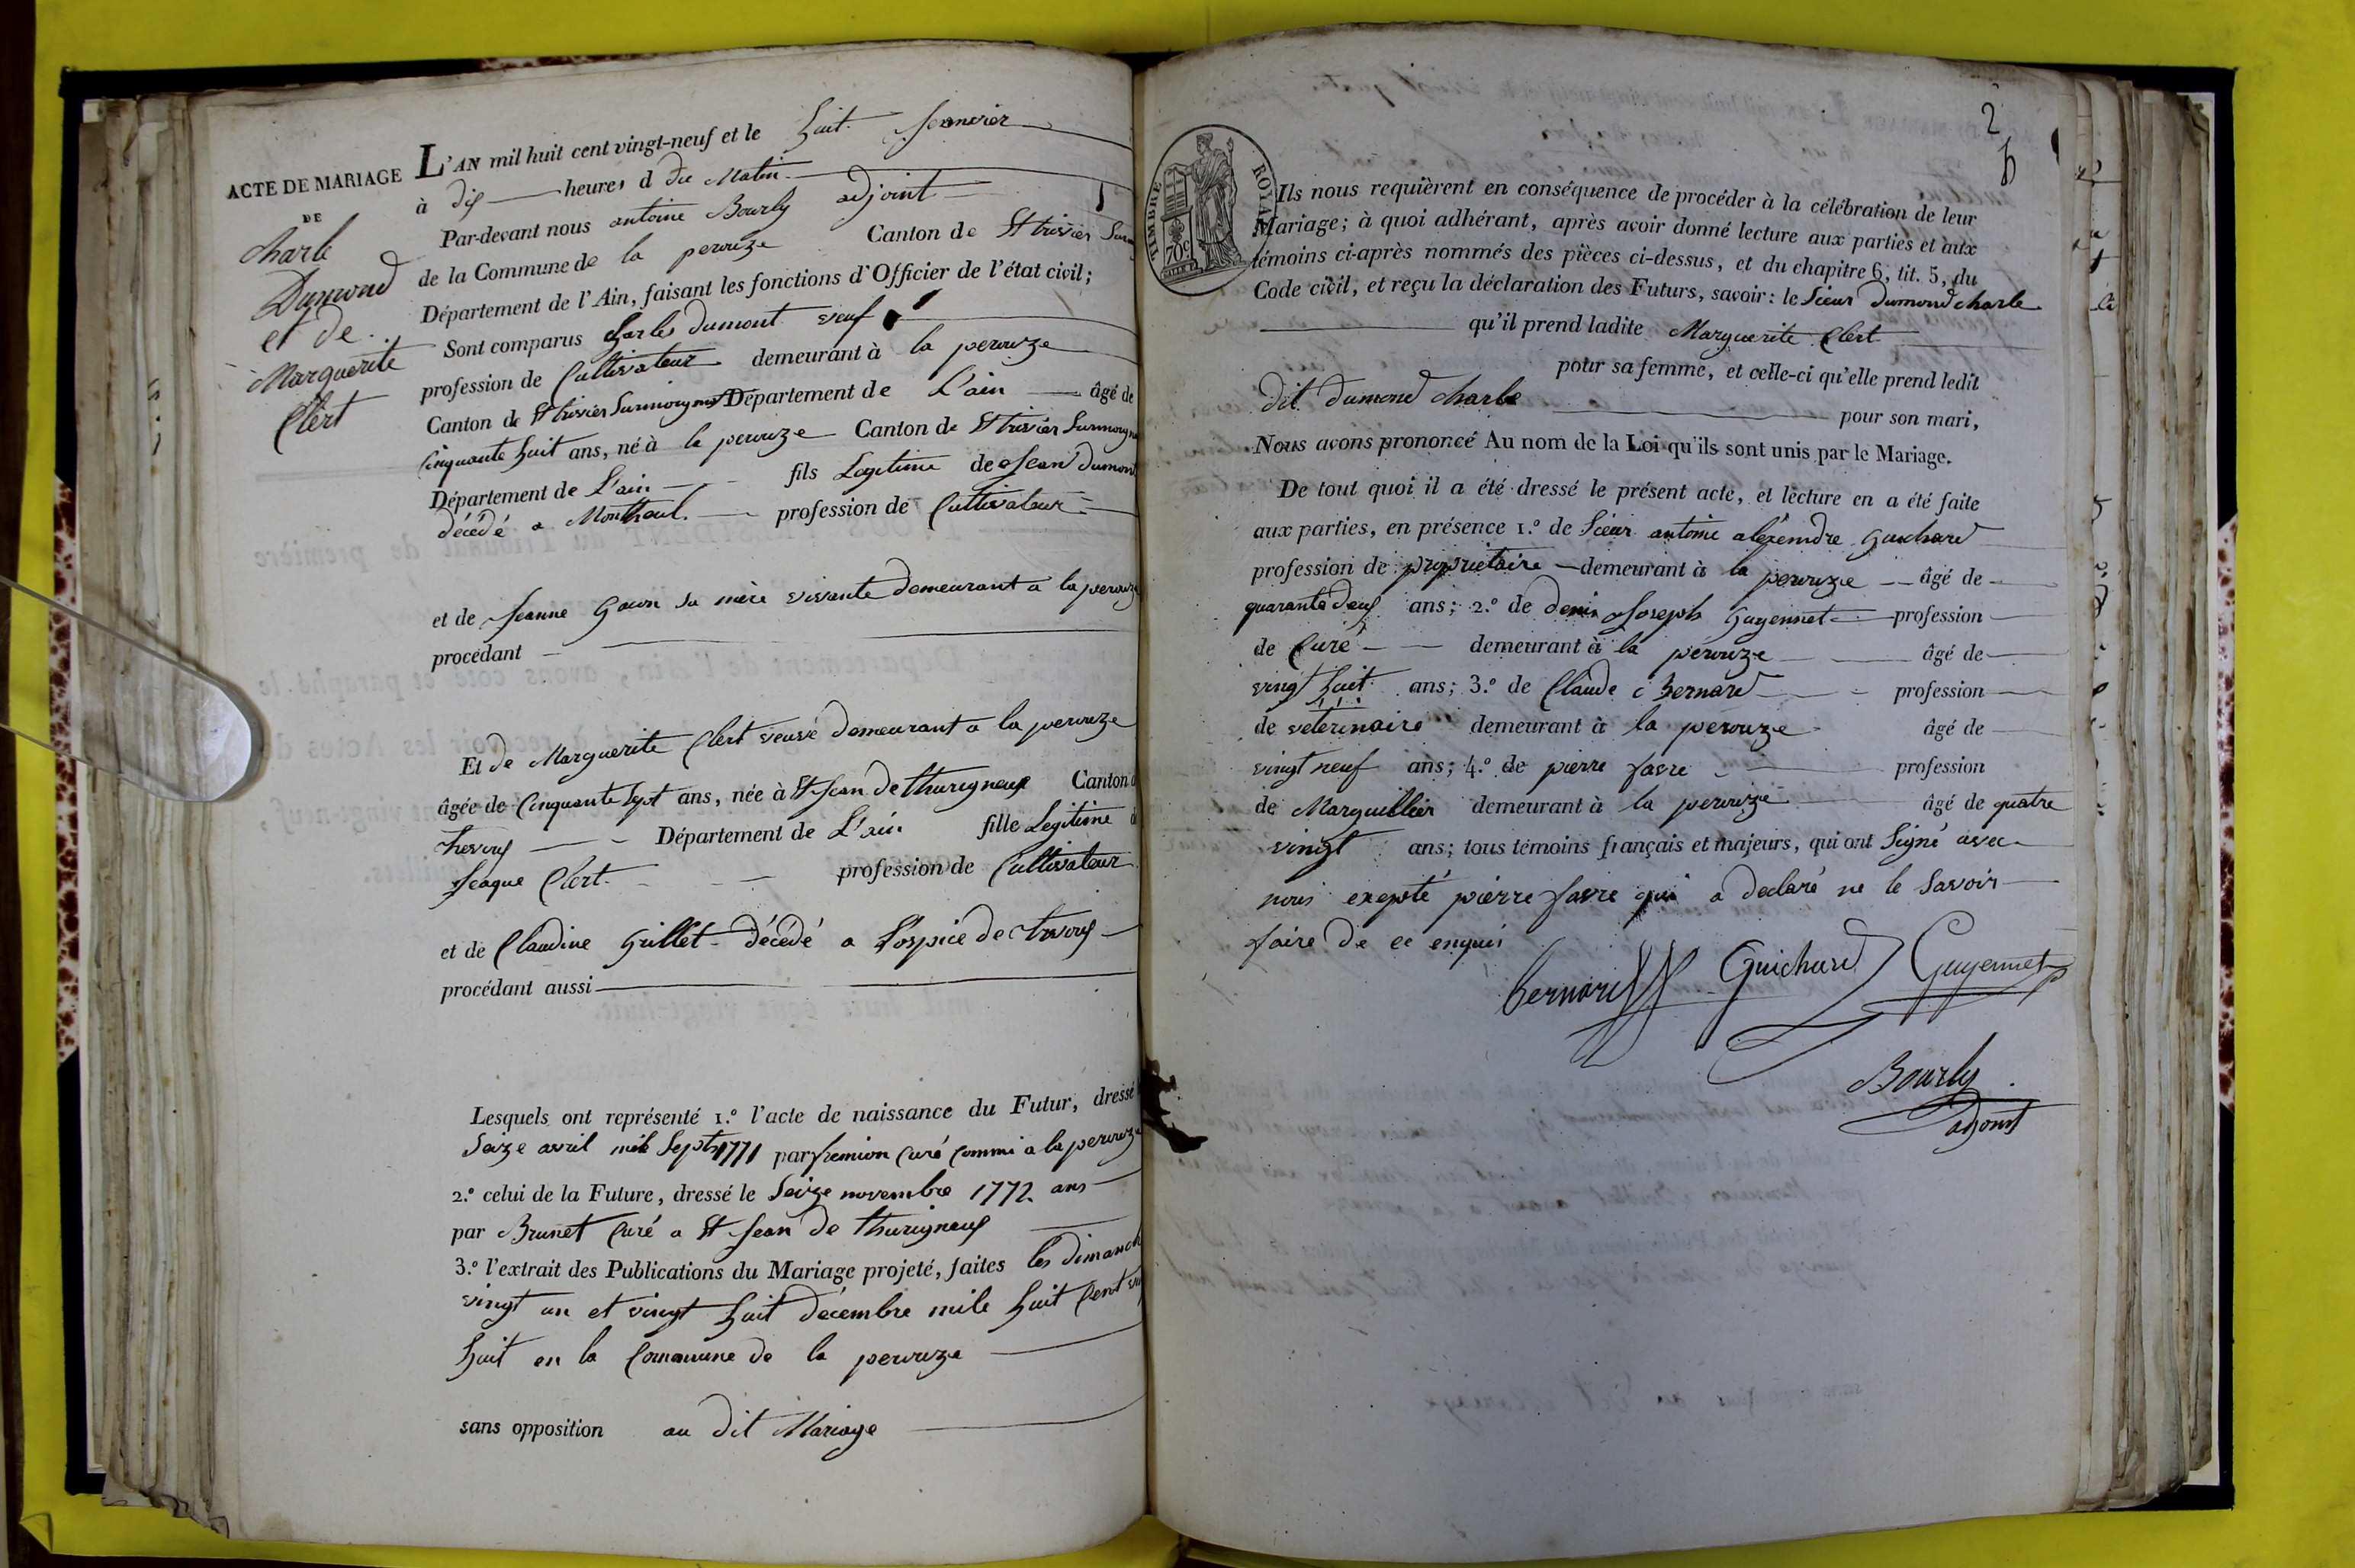 ACTE DE MARIAGE
DE
charle
Dumond
et de
Marguerite
Clert
L'AN mil huit cent vingt-neuf et le huit Janvier
à dix heures d du Matin
Par-devant nous antoine Bourly adjoint
de la Commune de la perouze Canton de St trivier Sur
Département de l'Ain, faisant les fonctions d'Officier de l'état civil;
Sont comparus Charles dumont veuf
profession de Cultivateur demeurant à la perouze
Canton de St trivier Surmoignat Département de L'ain âgé de
Cinquante huit ans, né à la perouze Canton de St trivier Surmoign
Département de L'ain fils Legitime de Jean dumont
décédé a Montheul profession de Cultivateur
et de Jeanne Goun sa mère vivante demeurant a la perouze
procédant
Et de Marguerite Clert veuve demeurant a la perouze
âgée de Cinquante Sept ans, née à St Jean de thurigneux Canton d
trevoux Département de L'ain fille Legitime d
Jeaque Clert profession de Cultivateur
et de Claudine Grillet décédé a L'ospice de trevoux
procédant aussi
Lesquels ont représenté 1.º l'acte de naissance du Futur, dressé
Seize avril mile Sept 1771 par fremion Curé Commi a la perouze
2.º celui de la Future, dressé le Seize novembre 1772 ans
par Brunet Curé a St Jean de thurigneux
3.º l'extrait des Publications du Mariage projeté, faites les dimanch
vingt un et vingt huit décembre mile huit Cent vin
huit en la Commune de la perouze
sans opposition au dit Mariage
2
TIMBRE ROYAL
70c
Ils nous requièrent en conséquence de procéder à la célébration de leur
Mariage; à quoi adhérant, après avoir donné lecture aux parties et aux
témoins ci-après nommés des pièces ci-dessus, et du chapitre 6, tit. 5, du
Code civil, et reçu la déclaration des Futurs, savoir: le Sieur dumond charle
qu'il prend ladite Marguerite Clert
pour sa femme, et celle-ci qu'elle prend ledit
dit dumond charle pour son mari,
Nous avons prononcé Au nom de la Loi qu'ils sont unis par le Mariage.
De tout quoi il a été dressé le présent acte, et lecture en a été faite
aux parties, en présence 1.º de Sieur antoine aléxendre Guichard
profession de propriétaire demeurant à la perouze âgé de
quarante deux ans; 2.º de denis Joseph Guyennet profession
de Curé demeurant à la pérouze âgé de
vingt huit ans; 3.º de Claude Bernard profession
de veterinaire demeurant à la perouze âgé de
vingt neuf ans; 4.º de pierre favre profession
de Marguillier demeurant à la perouze âgé de quatre
vingt ans; tous témoins français et majeurs, qui ont Signé avec
nous exepté pierre favre qui a declaré ne le Savoir
faire de ce enquis
Bernard Guichard Guyennet
Bourly
adjoint